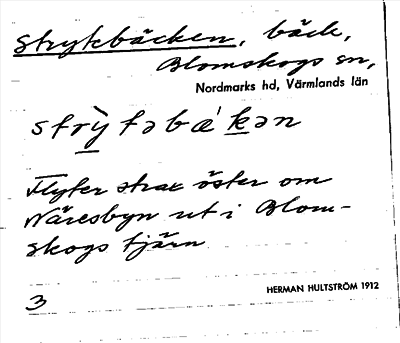 Strykbäcken, bäck,
Blomskogs sn,
Nordmarks hd, Värmlands län
strỳtəbǽkən
Flyter strax öster om
Näresbyn ut i Blom-
skogs tjärn
3
HERMAN HULTSTRÖM 1912